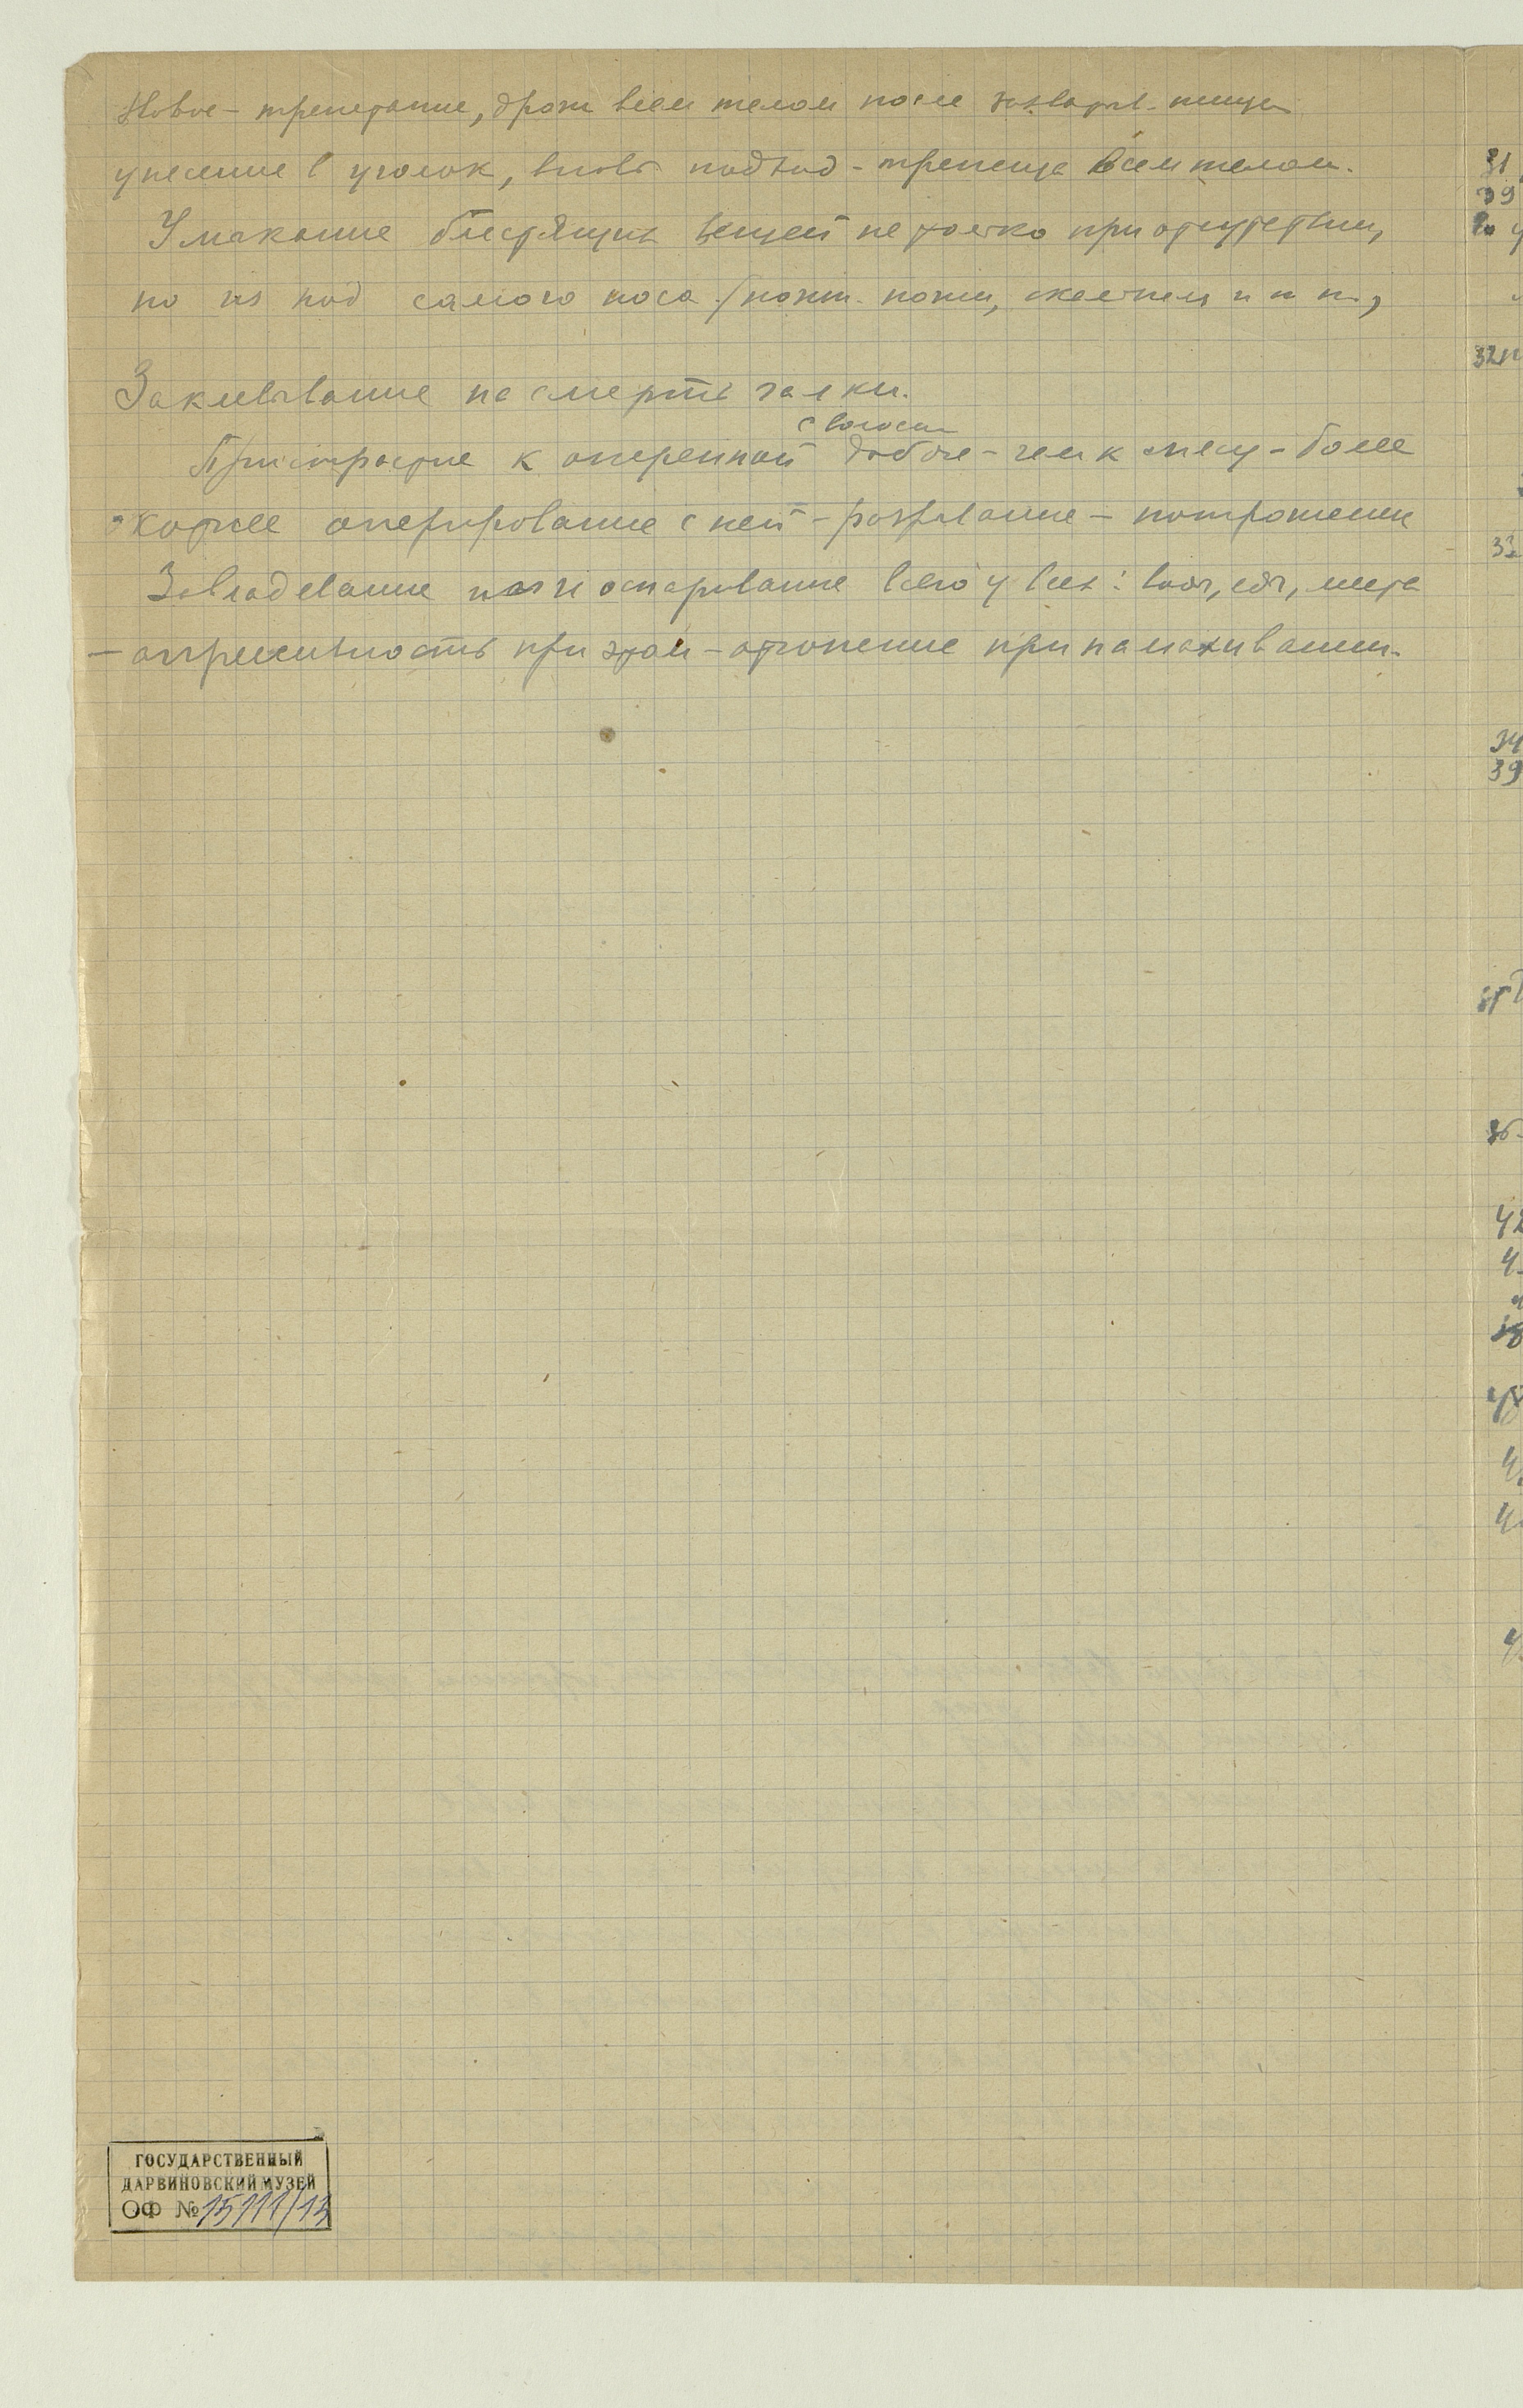 Новое – трепетание, дрожь всем телом после захватыв. пищи
унесение в уголок, вновь подход – трепеща всем телом.
Умыкание блестящих вещей не только при отсутствии,
но из под самого носа. (ножн. ножи, и т. п.)
Заклевывание на смерть галки.
с волосом
Пристрастие к оперенной добыче – чем к мясу – более
скорое оперирование с ней – разрывание – потрошение
Завладевание и оспаривание всего у всех: воды, еды, места
– агрессивность при этом – отгонение при намахивании.
31
39
32
33
34
39
42
ГОСУДАРСТВЕННЫЙ
ДАРВИНОВСКИЙ МУЗЕЙ
ОФ № 15111/13